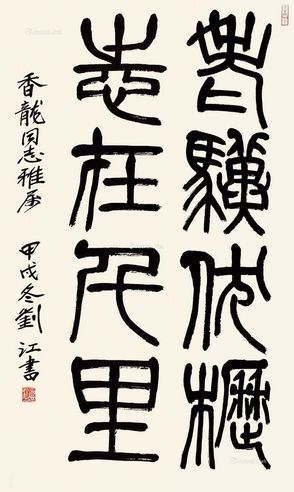 老驥伏櫪
志在千里
香龍同志雅屬
甲戌冬劉江書